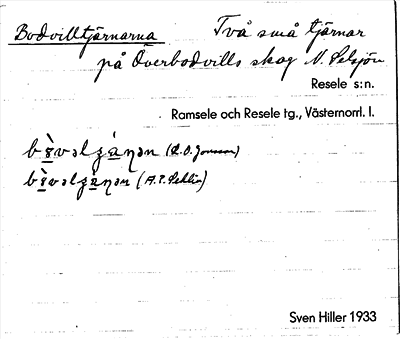 Bodvilltjärnarna Två små tjärnar
på Överbodvills skog N. Selsjön
Resele s:n.
Ramsele och Resele tg., Västernorrl. l.
(L.O. Jonsson)
(A.P. Sehlin)
Sven Hiller 1933